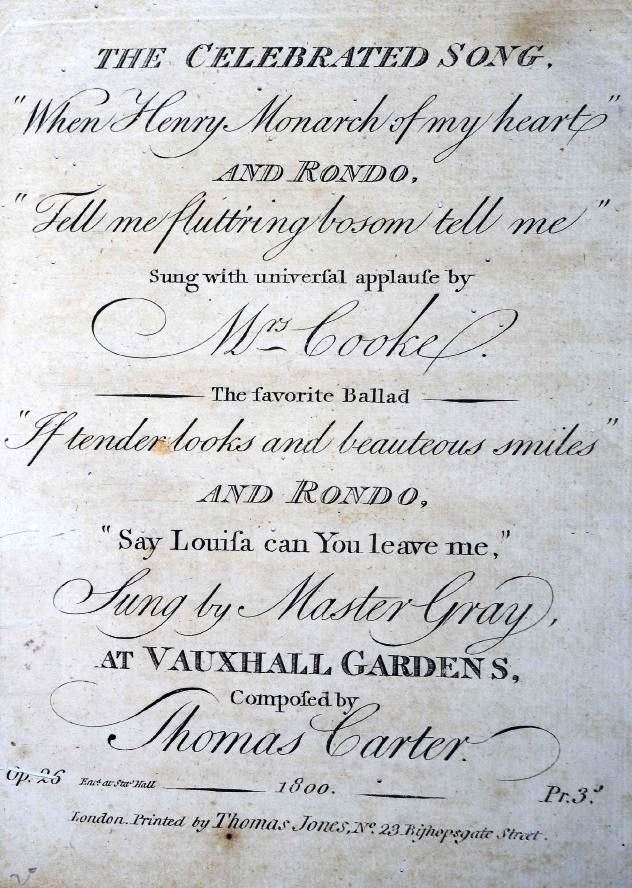 THE CELEBRATED SONG,
"When Henry Monarch of my heart"
AND RONDO,
"Tell me flutt'ring bosom tell me"
Sung with univerſal applauſe by
Mrs Cooke.
The favorite Ballad
"If tender looks and beauteous smiles"
AND RONDO,
"Say Louiſa can You leave me,"
Sung by Master Gray,
AT VAUXHALL GARDENS,
Compoſed by
Thomas Carter.
Op. 26 Entd at Stars Hall 1800. Pr. 3s
London. Printed by Thomas Jones, No. 23 Biſhopsgate Street.